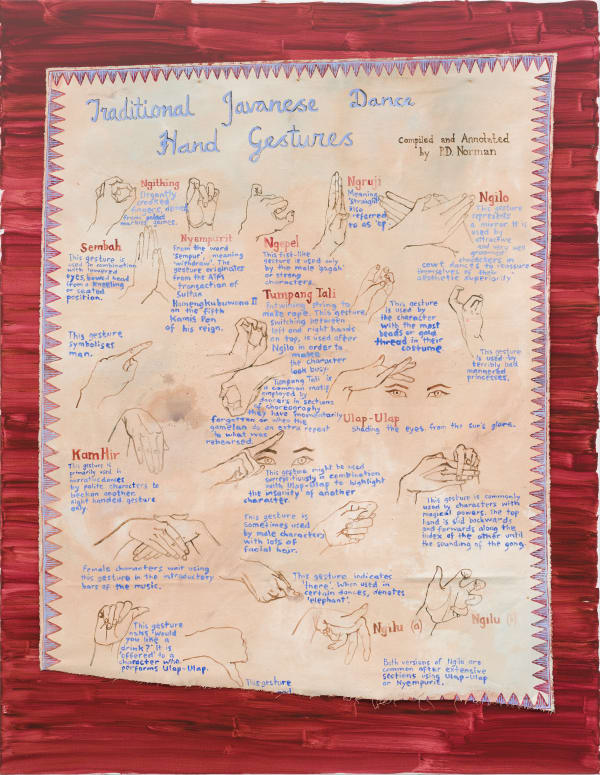 Traditional Javanese Dance
Hand Gestures
Compiled and Annotated
by P.D. Norman
Ngithing
Elegantly
crooked
fingers, derived
from goli
marbles games.
Nyempurit
From the word
'sempur', meaning
'withdraw'. The
gesture originates
from the ATM
transaction of
Sultan
Hamengkubuwana II
on the fifth
Kamis Pon
of his reign.
Ngepel
This fist-like
gesture is used only
by the male 'gagah'
or strong
characters.
Ngruji
Meaning
'straight'
Also
referred
to as
Ngilo
This gesture
represents
a mirror. It is
used by
attractive
and very well
groomed
characters in
court dances to reassure
themselves of their
aesthetic superiority
Sembah
This gesture is
used in combination
with lowered
eyes, bowed head
from a kneeling
or seated
position.
Tumpang Tali
Entwining string to
make rope. This gesture,
switching between
left and right hands
on top, is used after
Ngilo in order to
make
the character
look busy.
Tumpang Tali is
a common motif
employed by
dancers in sections
of choreography
they have momentarily
forgotten or when the
gamelan do an extra repeat
to what was
rehearsed.
This gesture
is used by
the character
with the most
beads or gold
thread in their
costume
This gesture
is used by
terribly ill
mannered
princesses.
This gesture
symbolises
man.
Ulap-Ulap
Shading the eyes from the sun's glare.
Kam Hir
This gesture is
primarily used in
narrative dances
by polite characters to
beckon another.
Right handed gesture
only.
This gesture might be used
surreptitiously in combination
with Ulap-Ulap to highlight
the insanity of another
character.
This gesture is
sometimes used
by male characters
with lots of
facial hair.
This gesture is commonly
used by characters with
magical powers. The top
hand is slid backwards
and forwards along the
index of the other until
the sounding of the gong.
Female characters wait using
this gesture in the introductory
bars of the music.
This gesture indicates
'here'. When used in
certain dances, denotes
'elephant'.
Ngilu (a)
Ngilu
This gesture
asks 'would
you like a
drink?' It is
'offered' to a
character who
performs Ulap-Ulap.
This gesture
Both versions of Ngilu are
common after extensive
sections using Ulap-Ulap
or Nyempurit.